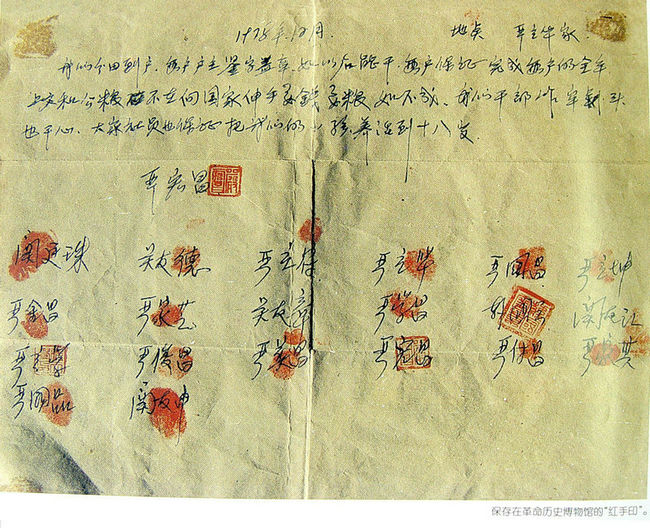 1978年12月. 地点 严立华家
我们分田到户，每户户主签字盖章，如以后能干，每户保证完成每户的全年
上交和公粮，不在向国家伸手要钱要粮，如不成，我们干部作牢刹头
也干心，大家社员也保证把我们的小孩养活到十八岁.
严宏昌
关廷珠 关友德 严立符 严立华 严国昌 严立坤
严金昌 严家芝 关友章 严学昌 韩国云 关友江
严立学 严俊昌 严美昌 严宏昌 严付昌
严国品 关友申
保存在革命历史博物馆的“红手印”。